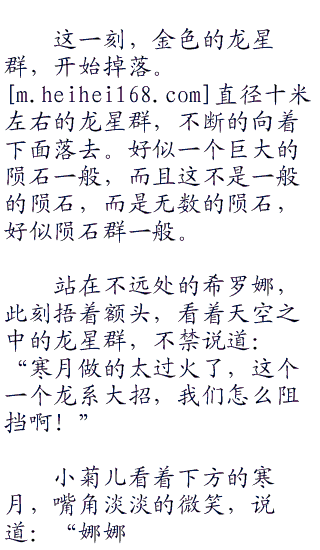 这一刻，金色的龙星
群，开始掉落。
[m.heihei168.com]直径十米
左右的龙星群，不断的向着
下面落去。好似一个巨大的
陨石一般，而且这不是一般
的陨石，而是无数的陨石，
好似陨石群一般。
站在不远处的希罗娜，
此刻捂着额头，看着天空之
中的龙星群，不禁说道：
“寒月做的太过火了，这个
一个龙系大招，我们怎么阻
挡啊！”
小菊儿看着下方的寒
月，嘴角淡淡的微笑，说
道：“娜娜